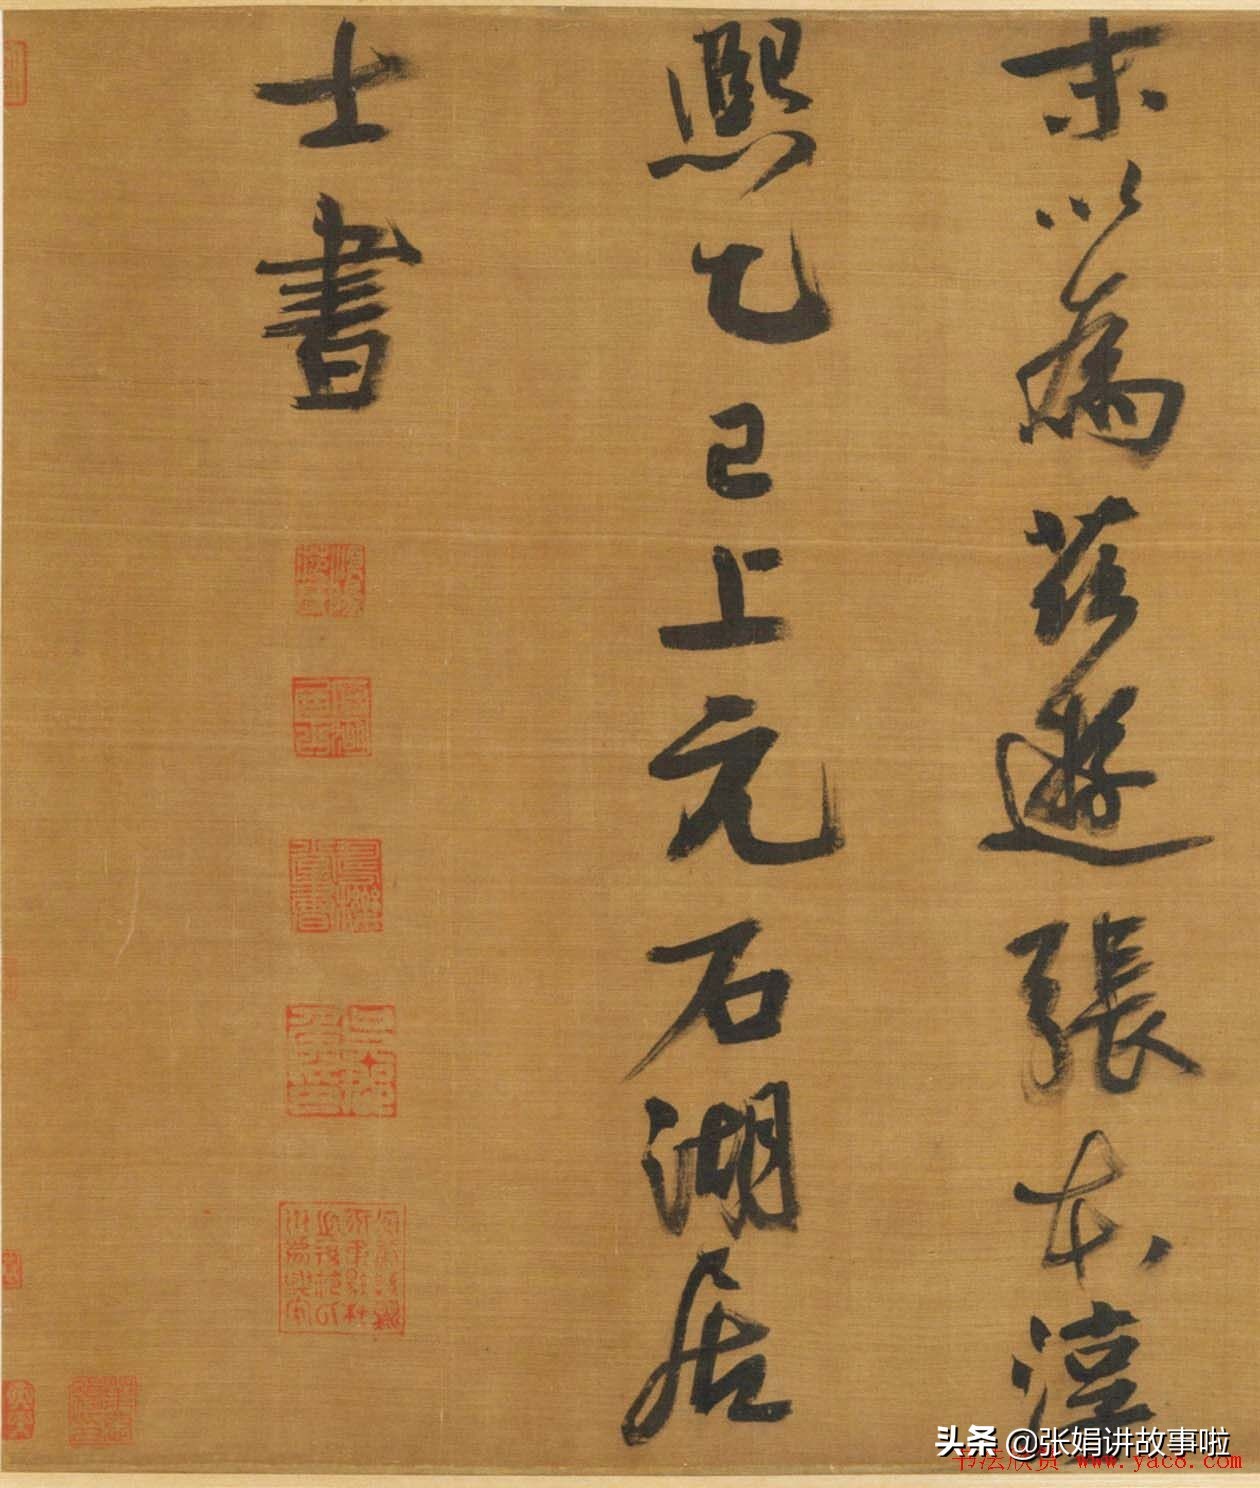 末以為茲遊張本淳
熙乙巳上元石湖居
士書
头条 @张娟讲故事啦
书法欣赏 www.yac8.com